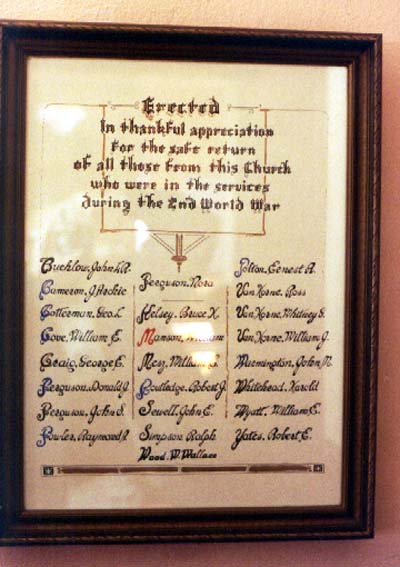 Erected
In thankful appreciation
for the safe return
of all those from this Church
who were in the services
during the 2nd World War
Buchlow, John
Cameron, J. Archie
Cotterman, Geo. L.
Cove, William E.
Craig, George E.
Ferguson, Donald J.
Ferguson, John S.
Fowler, Raymond
Ferguson, Nora
Kelsey, Bruce K.
Manson, William
William
Routledge, Robert J.
Sewell, John E.
Simpson, Ralph
Wood, W. Wallace
Tolton, Ernest A.
Van Horne, Ross
Van Horne, Whitney S.
Van Horne, William J.
Warmington, John M.
Whitehead, Harold
Wyatt, William E.
Yates, Robert E.